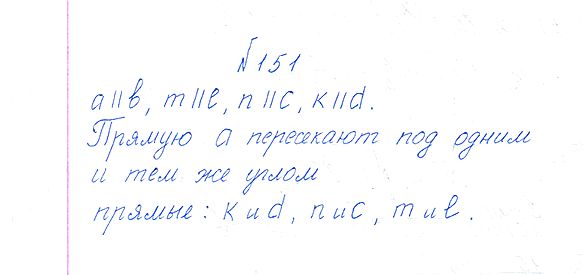 №151
a||b, m||l, n||c, к||d.
Прямую a пересекают под одним
и тем же углом
прямые: к и d, n и c, m и l.